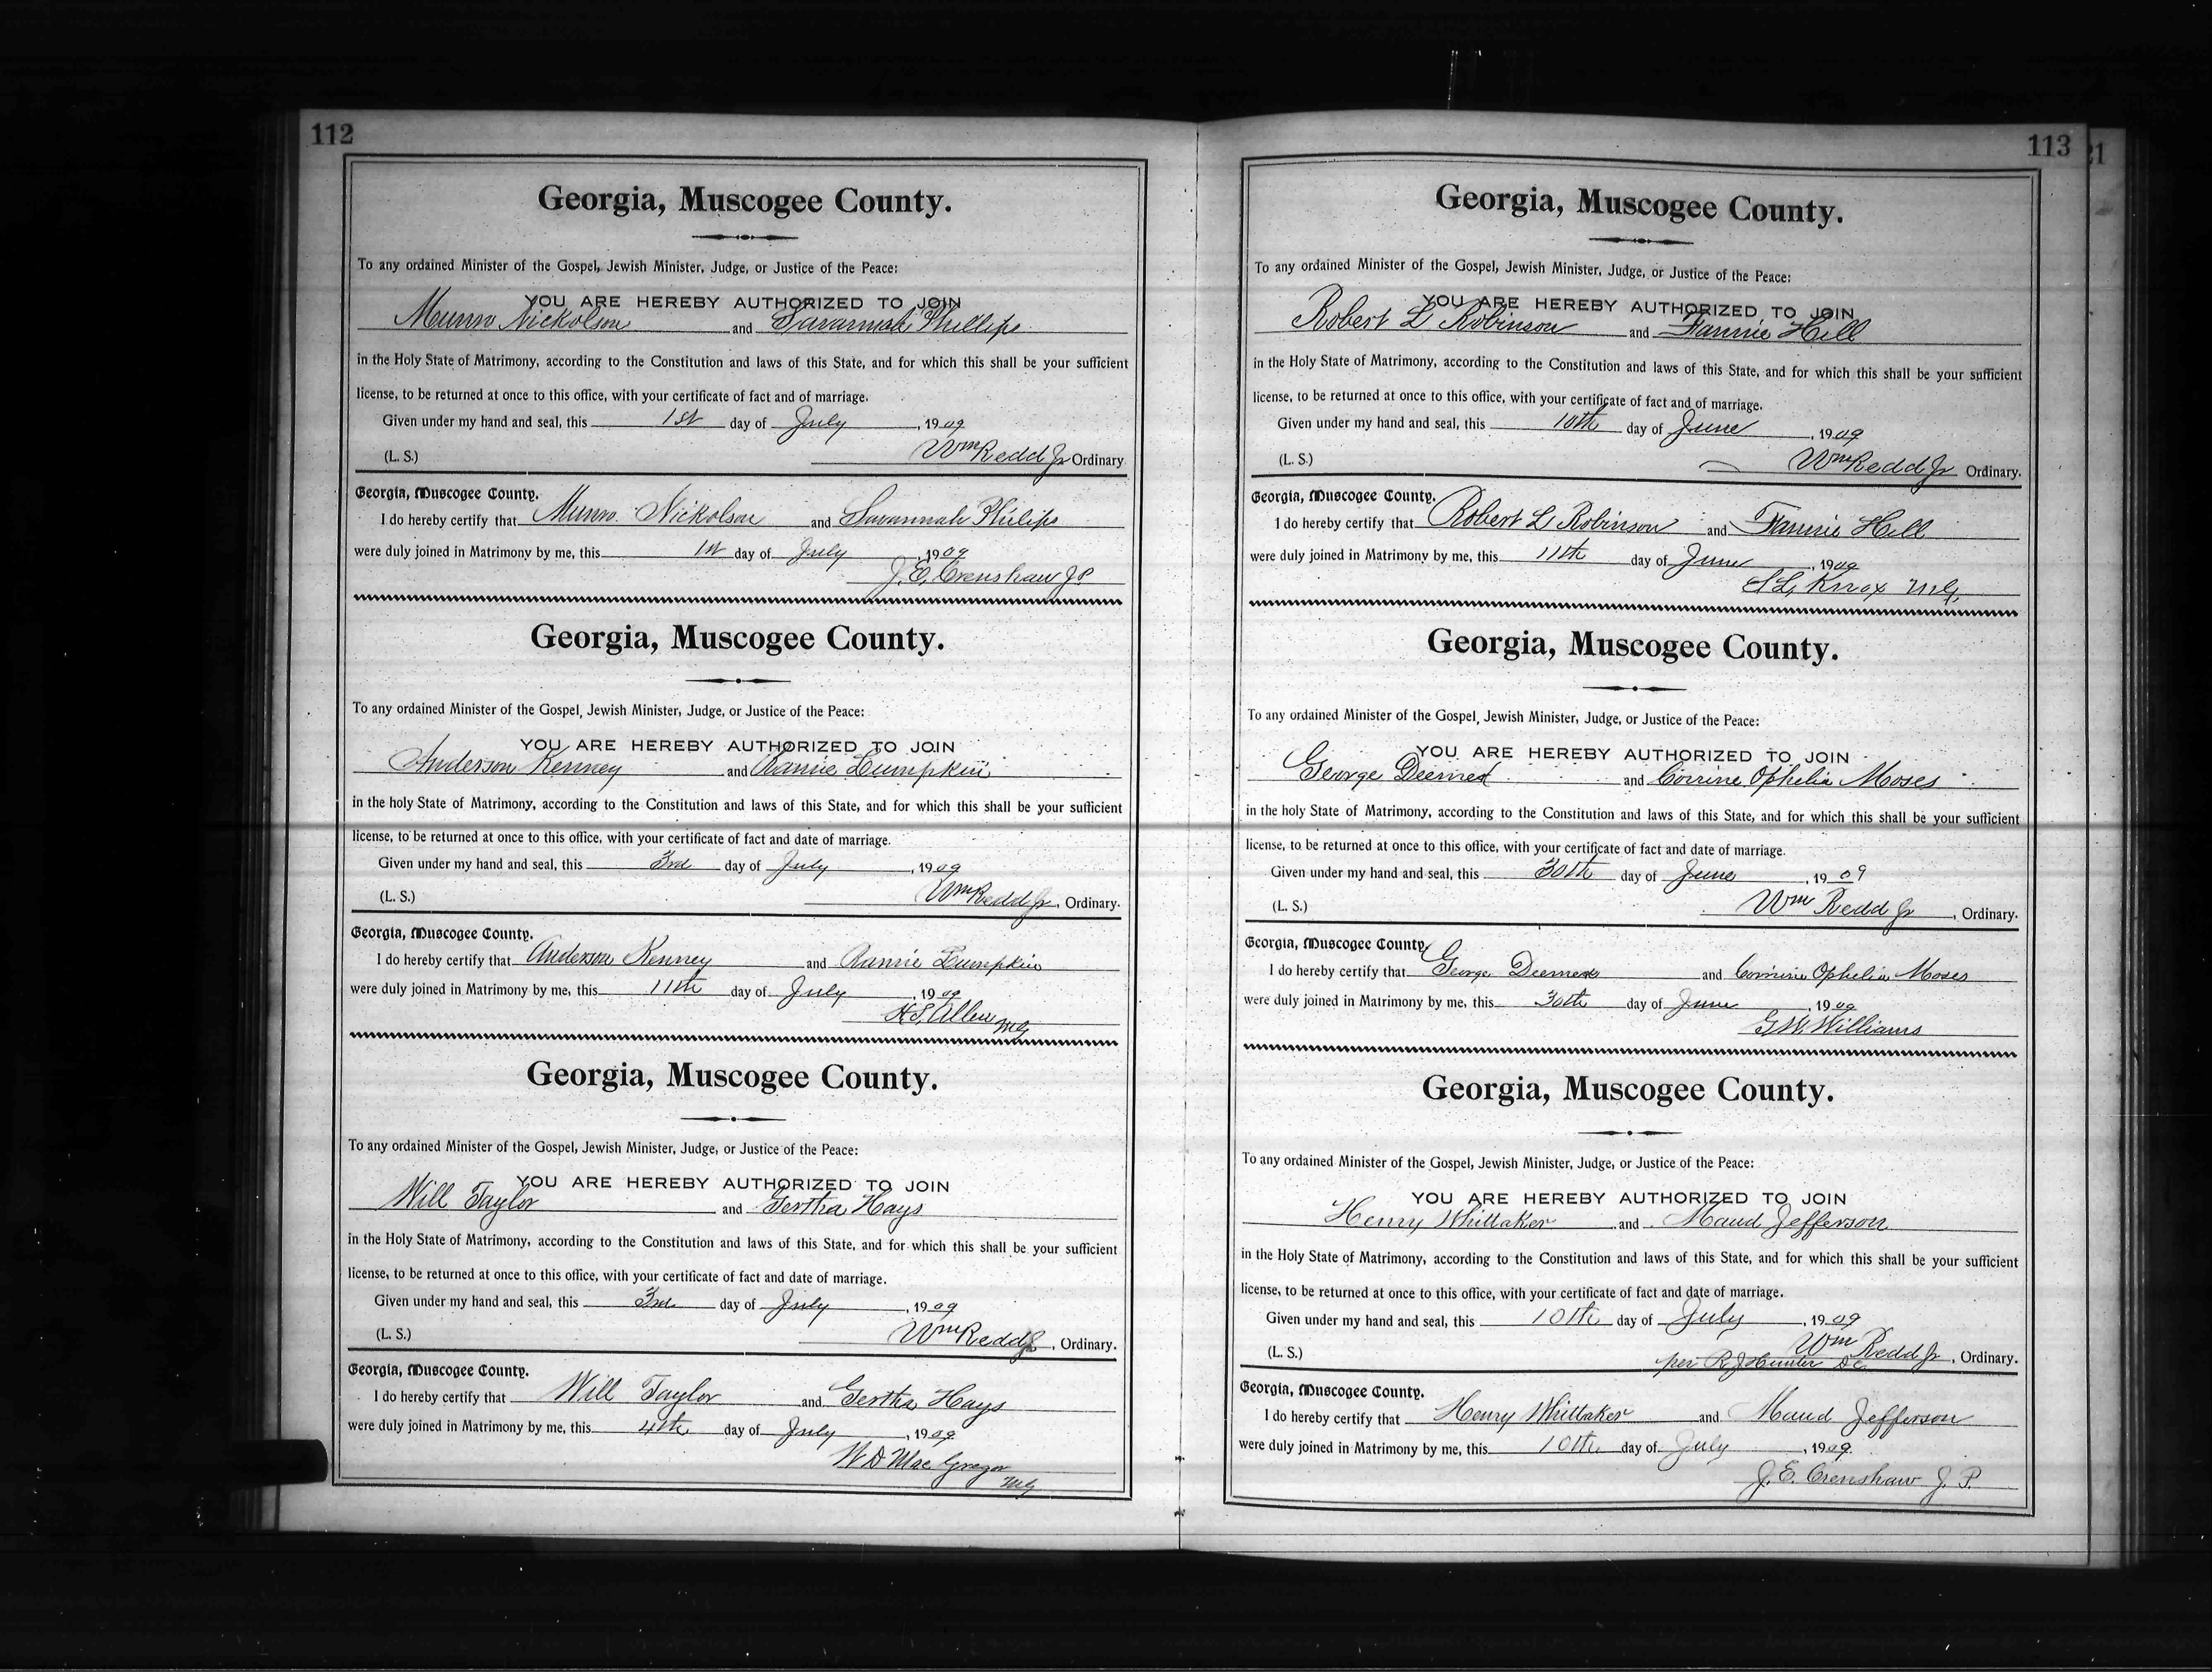 112
Georgia, Muscogee County.
To any ordained Minister of the Gospel, Jewish Minister, Judge, or Justice of the Peace:
YOU ARE HEREBY AUTHORIZED TO JOIN
Munro Nickolson and Savannah Phillips
in the Holy State of Matrimony, according to the Constitution and laws of this State, and for which this shall be your sufficient
license, to be returned at once to this office, with your certificate of fact and of marriage.
Given under my hand and seal, this 1st day of July, 1909
(L. S.) Wm Redd Jr Ordinary
Georgia, Muscogee County.
I do hereby certify that Munro Nickolson and Savannah Philips
were duly joined in Matrimony by me, this 1st day of July, 1909
J. E. Crenshaw J.P.
Georgia, Muscogee County.
To any ordained Minister of the Gospel, Jewish Minister, Judge, or Justice of the Peace:
YOU ARE HEREBY AUTHORIZED TO JOIN
Anderson Kenney and Rannie Lumpkin
in the holy State of Matrimony, according to the Constitution and laws of this State, and for which this shall be your sufficient
license, to be returned at once to this office, with your certificate of fact and date of marriage.
Given under my hand and seal, this 3rd day of July, 1909
(L. S.) Wm Redd Jr, Ordinary.
Georgia, Muscogee County.
I do hereby certify that Anderson Kenney and Rannie Lumpkin
were duly joined in Matrimony by me, this 11th day of July, 1909
H. S. Allen MG
Georgia, Muscogee County.
To any ordained Minister of the Gospel, Jewish Minister, Judge, or Justice of the Peace:
YOU ARE HEREBY AUTHORIZED TO JOIN
Will Taylor and Gertha Hays
in the Holy State of Matrimony, according to the Constitution and laws of this State, and for which this shall be your sufficient
license, to be returned at once to this office, with your certificate of fact and date of marriage.
Given under my hand and seal, this 3rd day of July, 1909
(L. S.) Wm Redd Jr, Ordinary.
Georgia, Muscogee County.
I do hereby certify that Will Taylor and Gertha Hays
were duly joined in Matrimony by me, this 4th day of July, 1909
W D MacGregor
MG
113
21
Georgia, Muscogee County.
To any ordained Minister of the Gospel, Jewish Minister, Judge, or Justice of the Peace:
YOU ARE HEREBY AUTHORIZED TO JOIN
Robert L Robinson and Fannie Hill
in the Holy State of Matrimony, according to the Constitution and laws of this State, and for which this shall be your sufficient
license, to be returned at once to this office, with your certificate of fact and of marriage.
Given under my hand and seal, this 10th day of June, 1909
(L. S.) Wm Redd Jr Ordinary.
Georgia, Muscogee County.
I do hereby certify that Robert L Robinson and Fannie Hill
were duly joined in Matrimony by me, this 11th day of June, 1909
S L Knox MG.
Georgia, Muscogee County.
To any ordained Minister of the Gospel, Jewish Minister, Judge, or Justice of the Peace:
YOU ARE HEREBY AUTHORIZED TO JOIN
George and Corrine Ophelia Moses
in the Holy State of Matrimony, according to the Constitution and laws of this State, and for which this shall be your sufficient
license, to be returned at once to this office, with your certificate of fact and date of marriage.
Given under my hand and seal, this 30th day of June, 1909
(L. S.) Wm Redd Jr, Ordinary.
Georgia, Muscogee County.
I do hereby certify that George and Corrine Ophelia Moses
were duly joined in Matrimony by me, this 30th day of June, 1909
G W Williams
Georgia, Muscogee County.
To any ordained Minister of the Gospel, Jewish Minister, Judge, or Justice of the Peace:
YOU ARE HEREBY AUTHORIZED TO JOIN
Henry Whittaker and Maud Jefferson
in the Holy State of Matrimony, according to the Constitution and laws of this State, and for which this shall be your sufficient
license, to be returned at once to this office, with your certificate of fact and date of marriage.
Given under my hand and seal, this 10th day of July, 1909
(L. S.) Wm Redd Jr, Ordinary.
per R J Hunter DC
Georgia, Muscogee County.
I do hereby certify that Henry Whittaker and Maud Jefferson
were duly joined in Matrimony by me, this 10th day of July, 1909.
J. E. Crenshaw J. P.